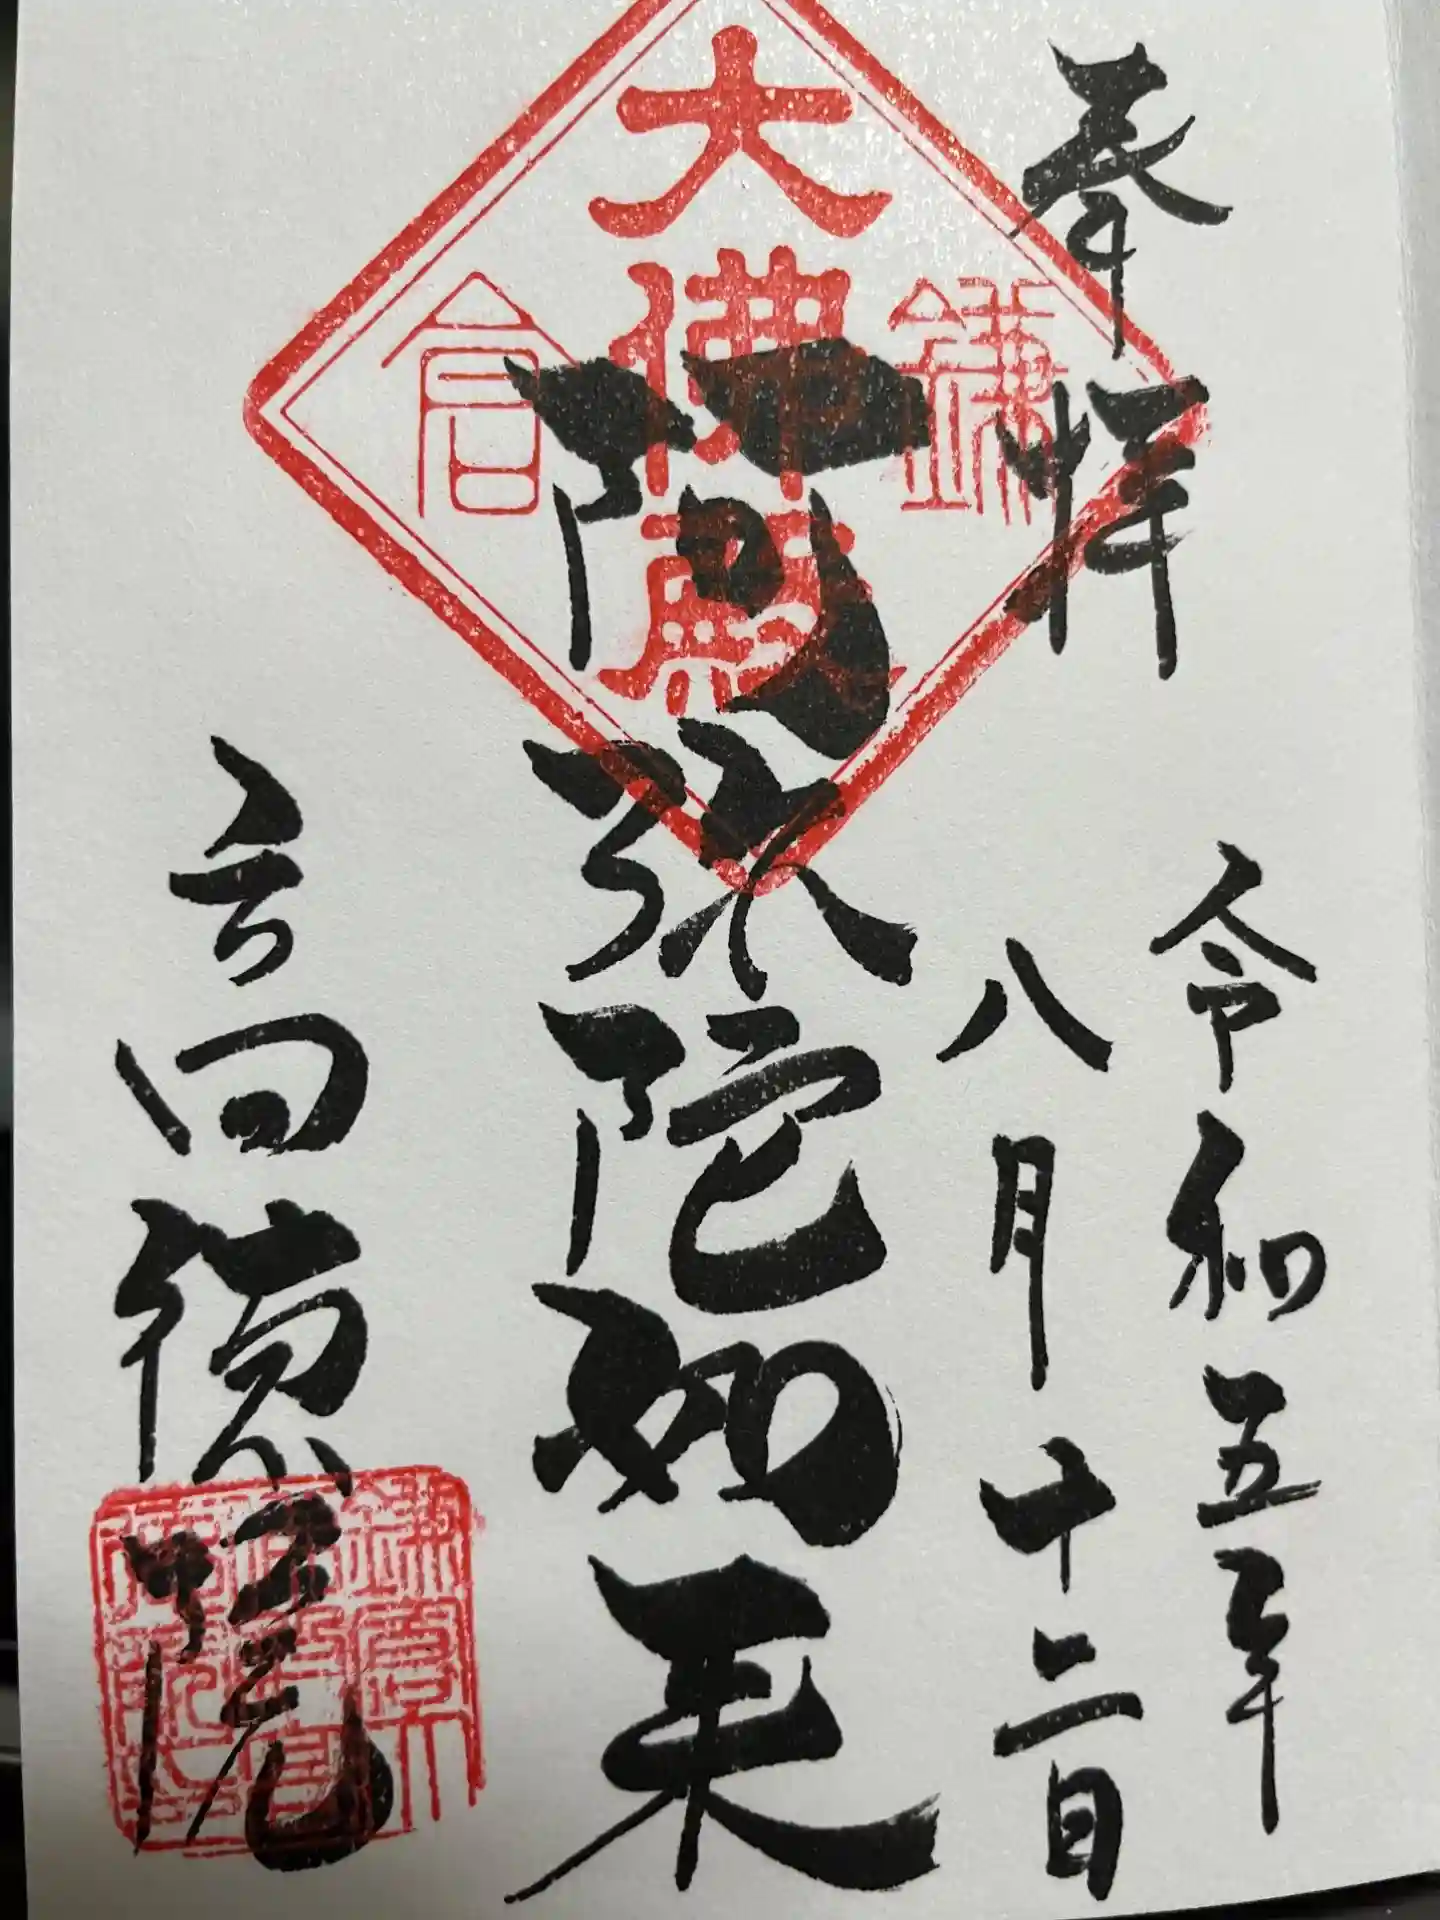 奉拝
令和五年
八月十二日
鎌
大佛殿
倉
阿弥陀如来
高徳院